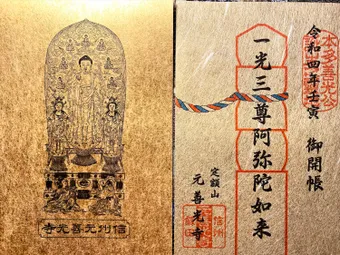 信州元善光寺
本多善光公
令和四年壬寅 御開帳
一光三尊阿弥陀如来
定額山
元善光寺